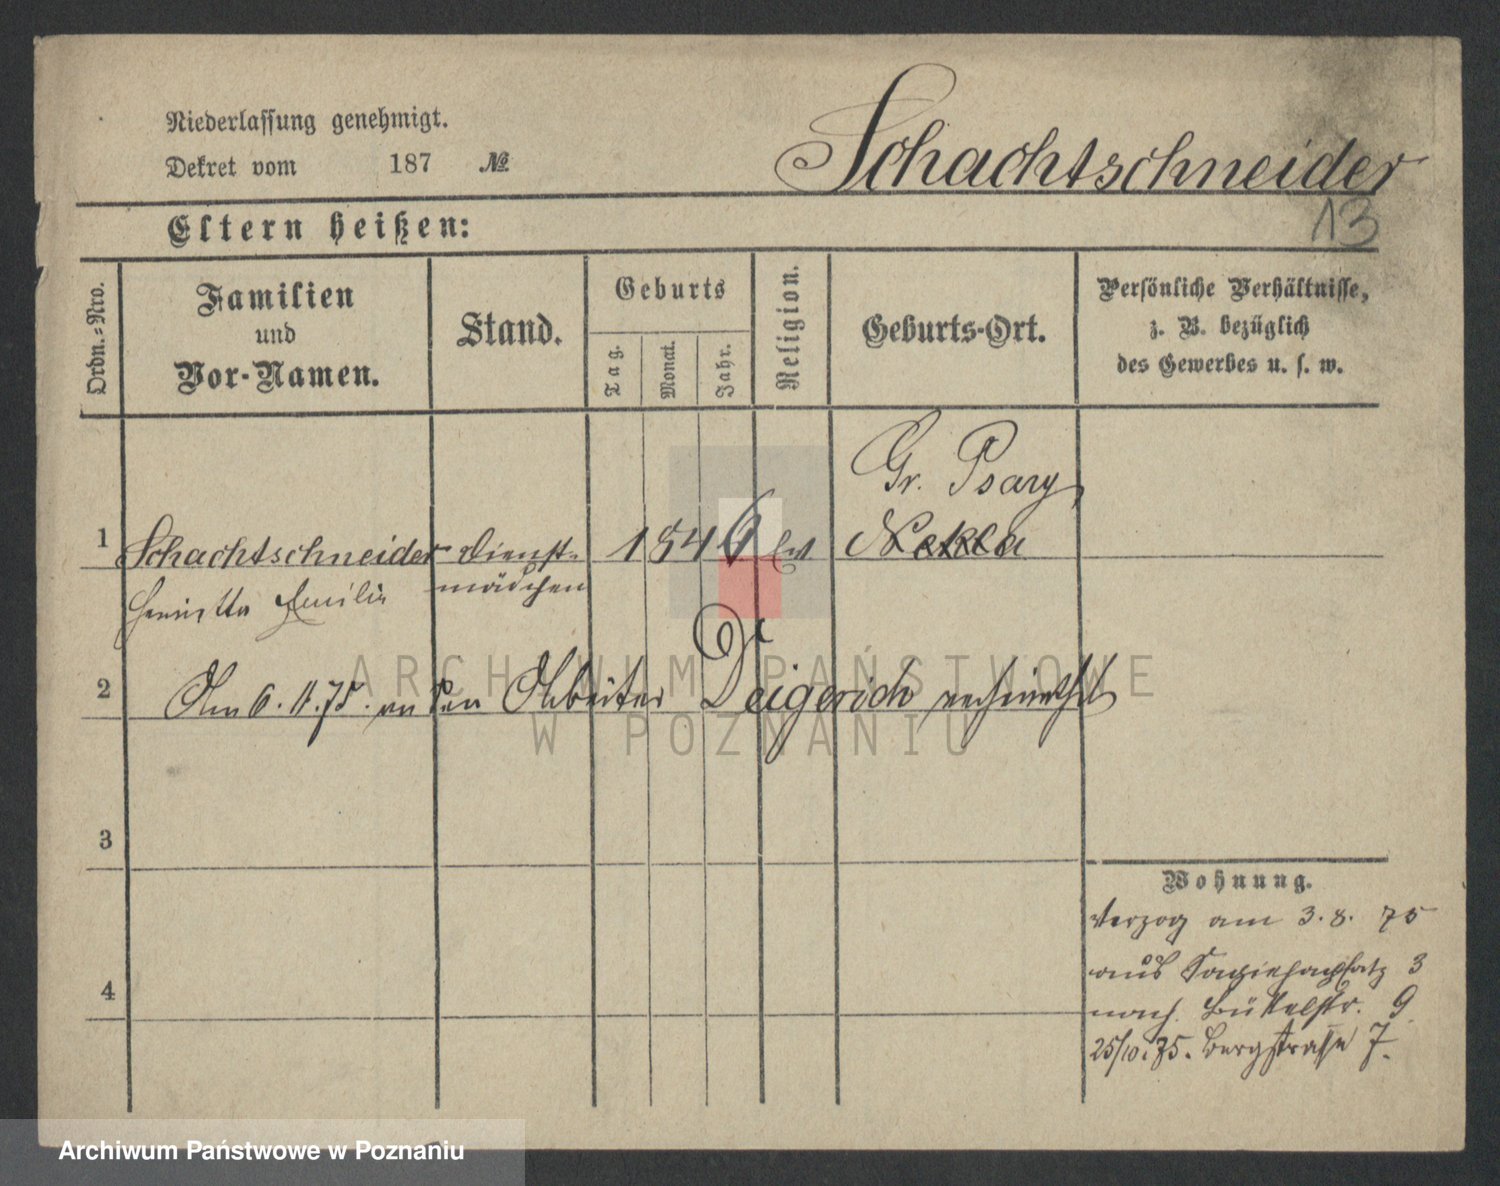 Niederlassung genehmigt.
Dekret vom 187 №
Schachtschneider
13
Eltern heißen:
Ordn.-Nro.
Familien
und
Vor-Namen.
Stand.
Geburts
Tag.
Monat.
Jahr.
Religion.
Geburts-Ort.
Persönliche Verhältnisse,
z. B. bezüglich
des Gewerbes u. s. w.
Gr. Psary
1 Schachtschneider Dienst- 1846 ev Nekla
Henriette Emilie mädchen
2 Am 6. 11. 75. an den Arbeiter Deigerich verheirathet
ARCHIWUM PAŃSTWOWE
W POZNANIU
3
4
Wohnung.
Verzog am 3. 8. 75
aus Sapiehaplatz 3
nach Büttelstr. 9
25/10.75. Bergstrasse 7.
Archiwum Państwowe w Poznaniu